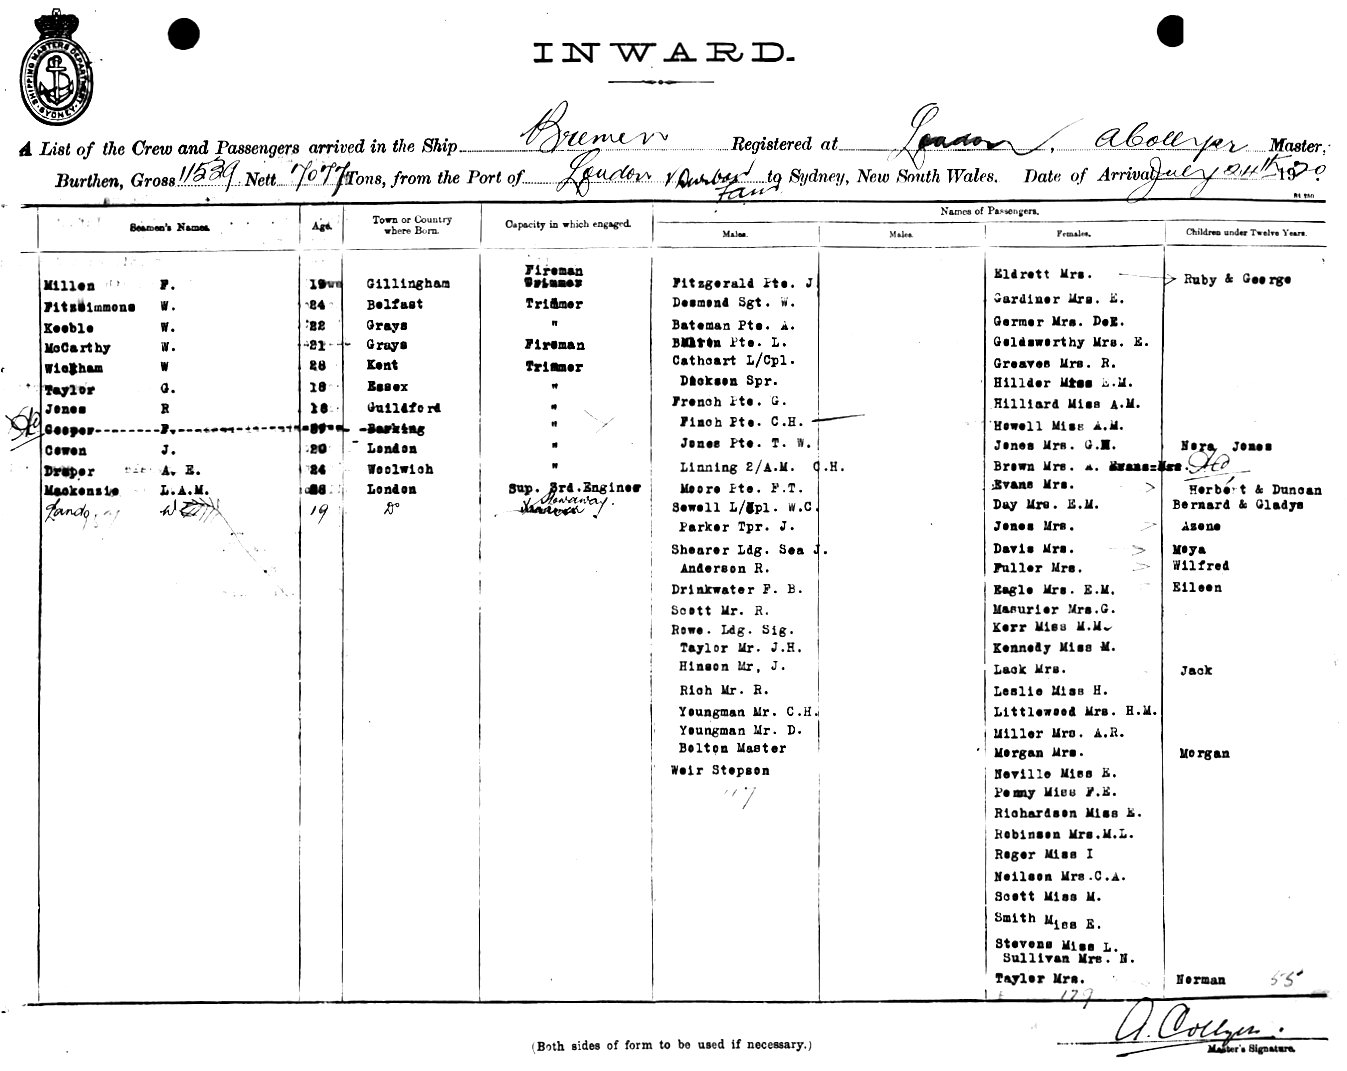 SHIPPING MASTERS DEPARTMENT SYDNEY
INWARD.
A List of the Crew and Passengers arrived in the Ship Bremen Registered at London, A Collyer Master,
Burthen, Gross 11539 Nett 7077 Tons, from the Port of London & Durban to Sydney, New South Wales. Date of Arrival July 24th 1920
Names of Passengers.
Seamen's Names. Age. Town or Country where Born. Capacity in which engaged. Males. Males. Females. Children under Twelve Years.
Millen F. 19 Gillingham Fireman Fitzgerald Pte. J Eldrett Mrs. Ruby & George
Fitzsimmons W. 24 Belfast Trimmer Desmond Sgt. W. Gardiner Mrs. E.
Keeble W. 22 Grays " Bateman Pte. A. Germer Mrs. DeE.
McCarthy W. 21 Grays Fireman Pte. L. Goldsworthy Mrs. E.
Wickham W 28 Kent Trimmer Cathcart L/Cpl. Greaves Mrs. R.
Taylor G. 18 Essex " Dickson Spr. Hillder Miss E.M.
Jones R 18 Guildford " French Pte. G. Hilliard Miss A.M.
Cooper F. Barking " Finch Pte. C.H. Howell Miss A.M.
Cowen J. 20 London " Jones Pte. T. W. Jones Mrs. G.M. Nora Jones
Draper A. E. 24 Woolwich " Linning 2/A.M. C.H. Brown Mrs. A. Evans Mrs.
Mackenzie L.A.M. London Sup. 3rd.Engineer Moore Pte. F.T. Evans Mrs. Herbert & Duncan
W 19 Do Stowaway. Sewell L/Cpl. W.C. Day Mrs. E.M. Bernard & Gladys
Parker Tpr. J. Jones Mrs. Azene
Shearer Ldg. Sea J. Davis Mrs. Moya
Anderson R. Fuller Mrs. Wilfred
Drinkwater F. B. Eagle Mrs. E.M. Eileen
Scott Mr. R. Masurier Mrs.G.
Rowe. Ldg. Sig. Kerr Miss M.M.
Taylor Mr. J.H. Kennedy Miss M.
Hinson Mr, J. Lack Mrs. Jack
Rich Mr. R. Leslie Miss H.
Youngman Mr. C.H. Littlewood Mrs. H.M.
Youngman Mr. D. Miller Mrs. A.R.
Bolton Master Morgan Mrs. Morgan
Weir Stepson Neville Miss E.
Penny Miss F.E.
Richardson Miss E.
Robinson Mrs.M.L.
Roger Miss I
Neilson Mrs.C.A.
Scott Miss M.
Smith Miss E.
Stevens Miss L.
Sullivan Mrs. N.
Taylor Mrs. Norman 55
A. Collyer.
Master's Signature.
(Both sides of form to be used if necessary.)